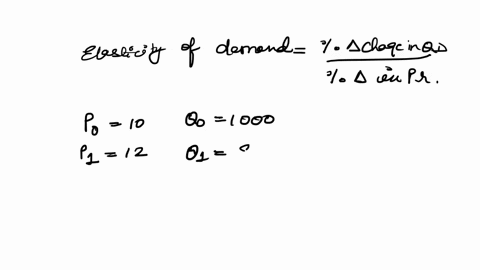 Elasticity of demand = % Δ chage in QD
% Δ in Pr.
P0 = 10 Q0 = 1000
P1 = 12 Q1 =